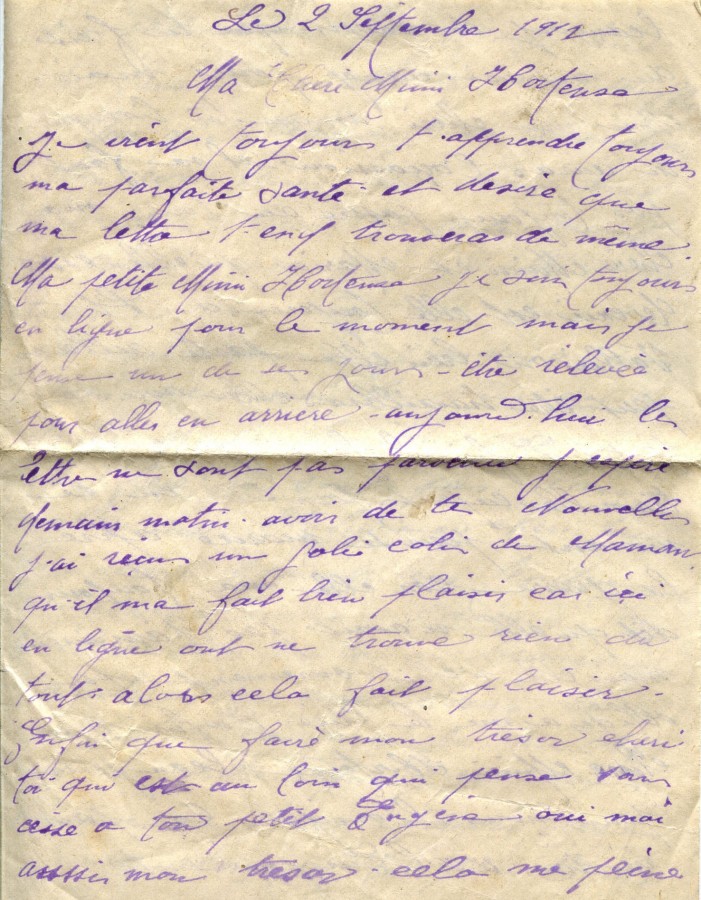 Le 2 Septembre 1917
Ma Cheri Mimi Hortensa
Je vient toujours t'apprendre toujours
ma parfaite santé et desire que
ma lettre t'en trouveras de même
Ma petite Mimi Hortensa je suis toujours
en ligne pour le moment mais je
pense un de ses jours être relevée
pour aller en arriere - aujourd'hui les
lettre ne sont pas parvenu j'espère
demain matin avoir de te Nouvelles
j'ai reçus un jolie colis de Maman
qu-il ma fait bien plaisir car ici
en ligne ont ne trouve rien du
tout alors cela fait plaisir -
Enfin que faire mon trésor cheri
toi qui est au loin qui pense sans
cesse a ton petit oui moi
ausssi mon tresor - cela me peine